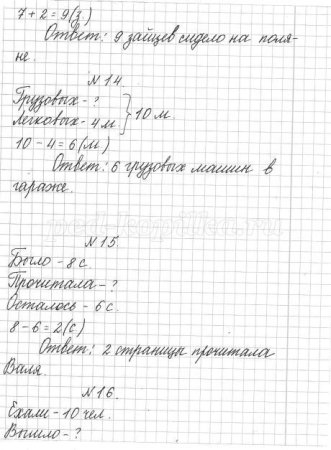 7 + 2 = 9 (з.)
Ответ: 9 зайцев сидело на поля-
не.
№ 14.
Грузовых - ?
Легковых - 4 м } 10 м.
10 - 4 = 6 (м)
Ответ: 6 грузовых машин в
гараже.
№ 15.
Было - 8 с.
Прочитала - ?
Осталось - 6 с.
8 - 6 = 2 (с)
Ответ: 2 страницы прочитала
Валя.
№ 16.
Ехали - 10 чел.
Вышло - ?